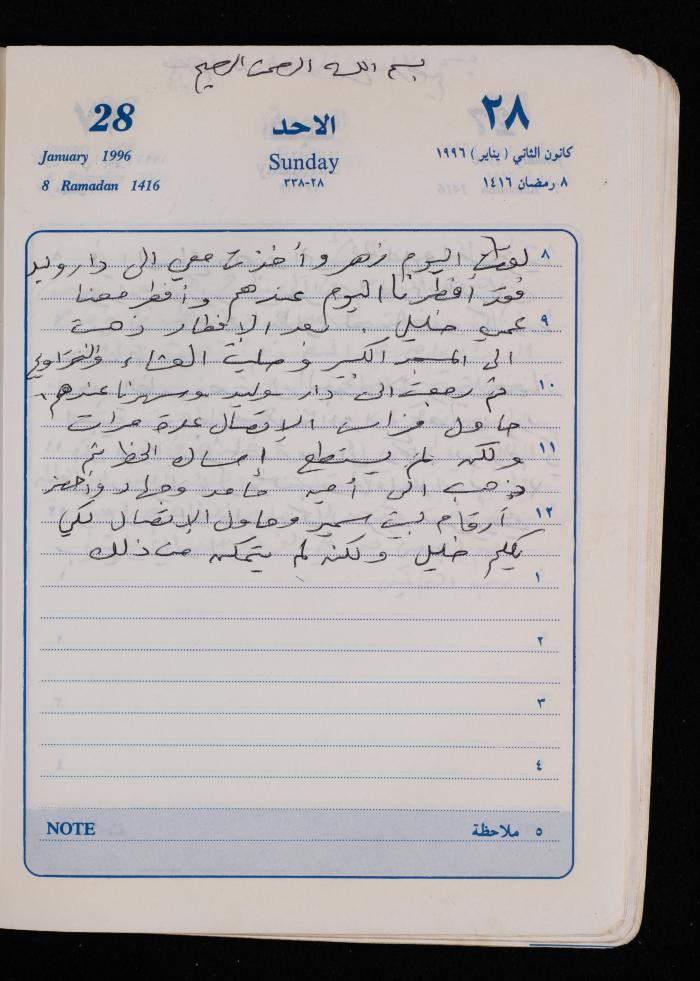 بسم الله الرحمن الرحيم
28 الاحد ٢٨
January 1996 Sunday كانون الثاني ( يناير ) ١٩٩٦
8 Ramadan 1416 ٢٨-٣٣٨ ٨ رمضان ١٤١٦
٨ اليوم زهر وأخذت معي الى دار وليد
فقد أفطرنا اليوم عندهم وأفطر معنا
٩ عمي خليل . بعد الإفطار ذهبت
الى المسجد الكبير وصليت العشاء والتراويح
١٠ ثم رجعت الى دار وليد وسهرنا عندهم .
حاول فراس الإتصال عدة مرات
١١ ولكن لم يستطع إمساك الخط ثم
ذهب الى وجهاد وأحضر
١٢ أرقام بيت سمير وحاول الإتصال لكي
يكلم خليل ولكنه لم يتمكن من ذلك
١
٢
٣
٤
NOTE ٥ ملاحظة